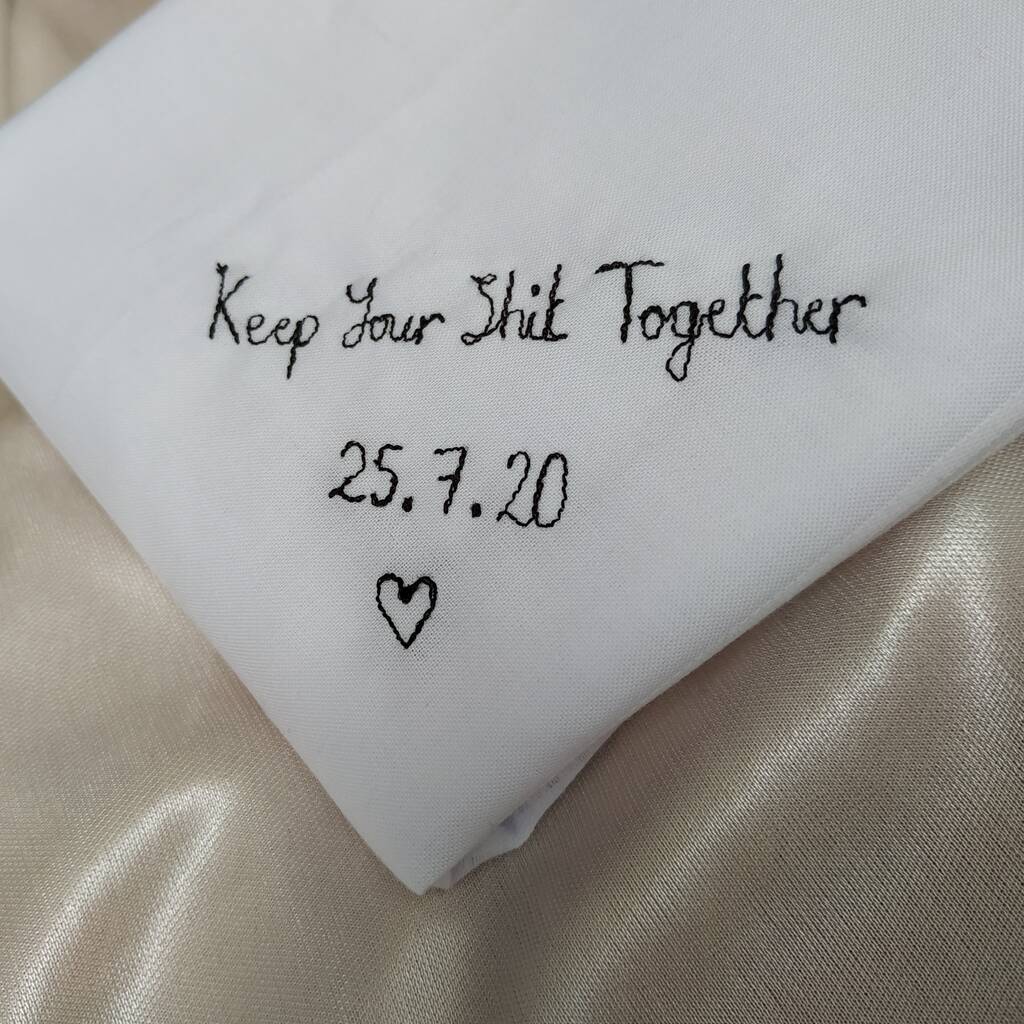 Keep Your Shit Together
25.7.20